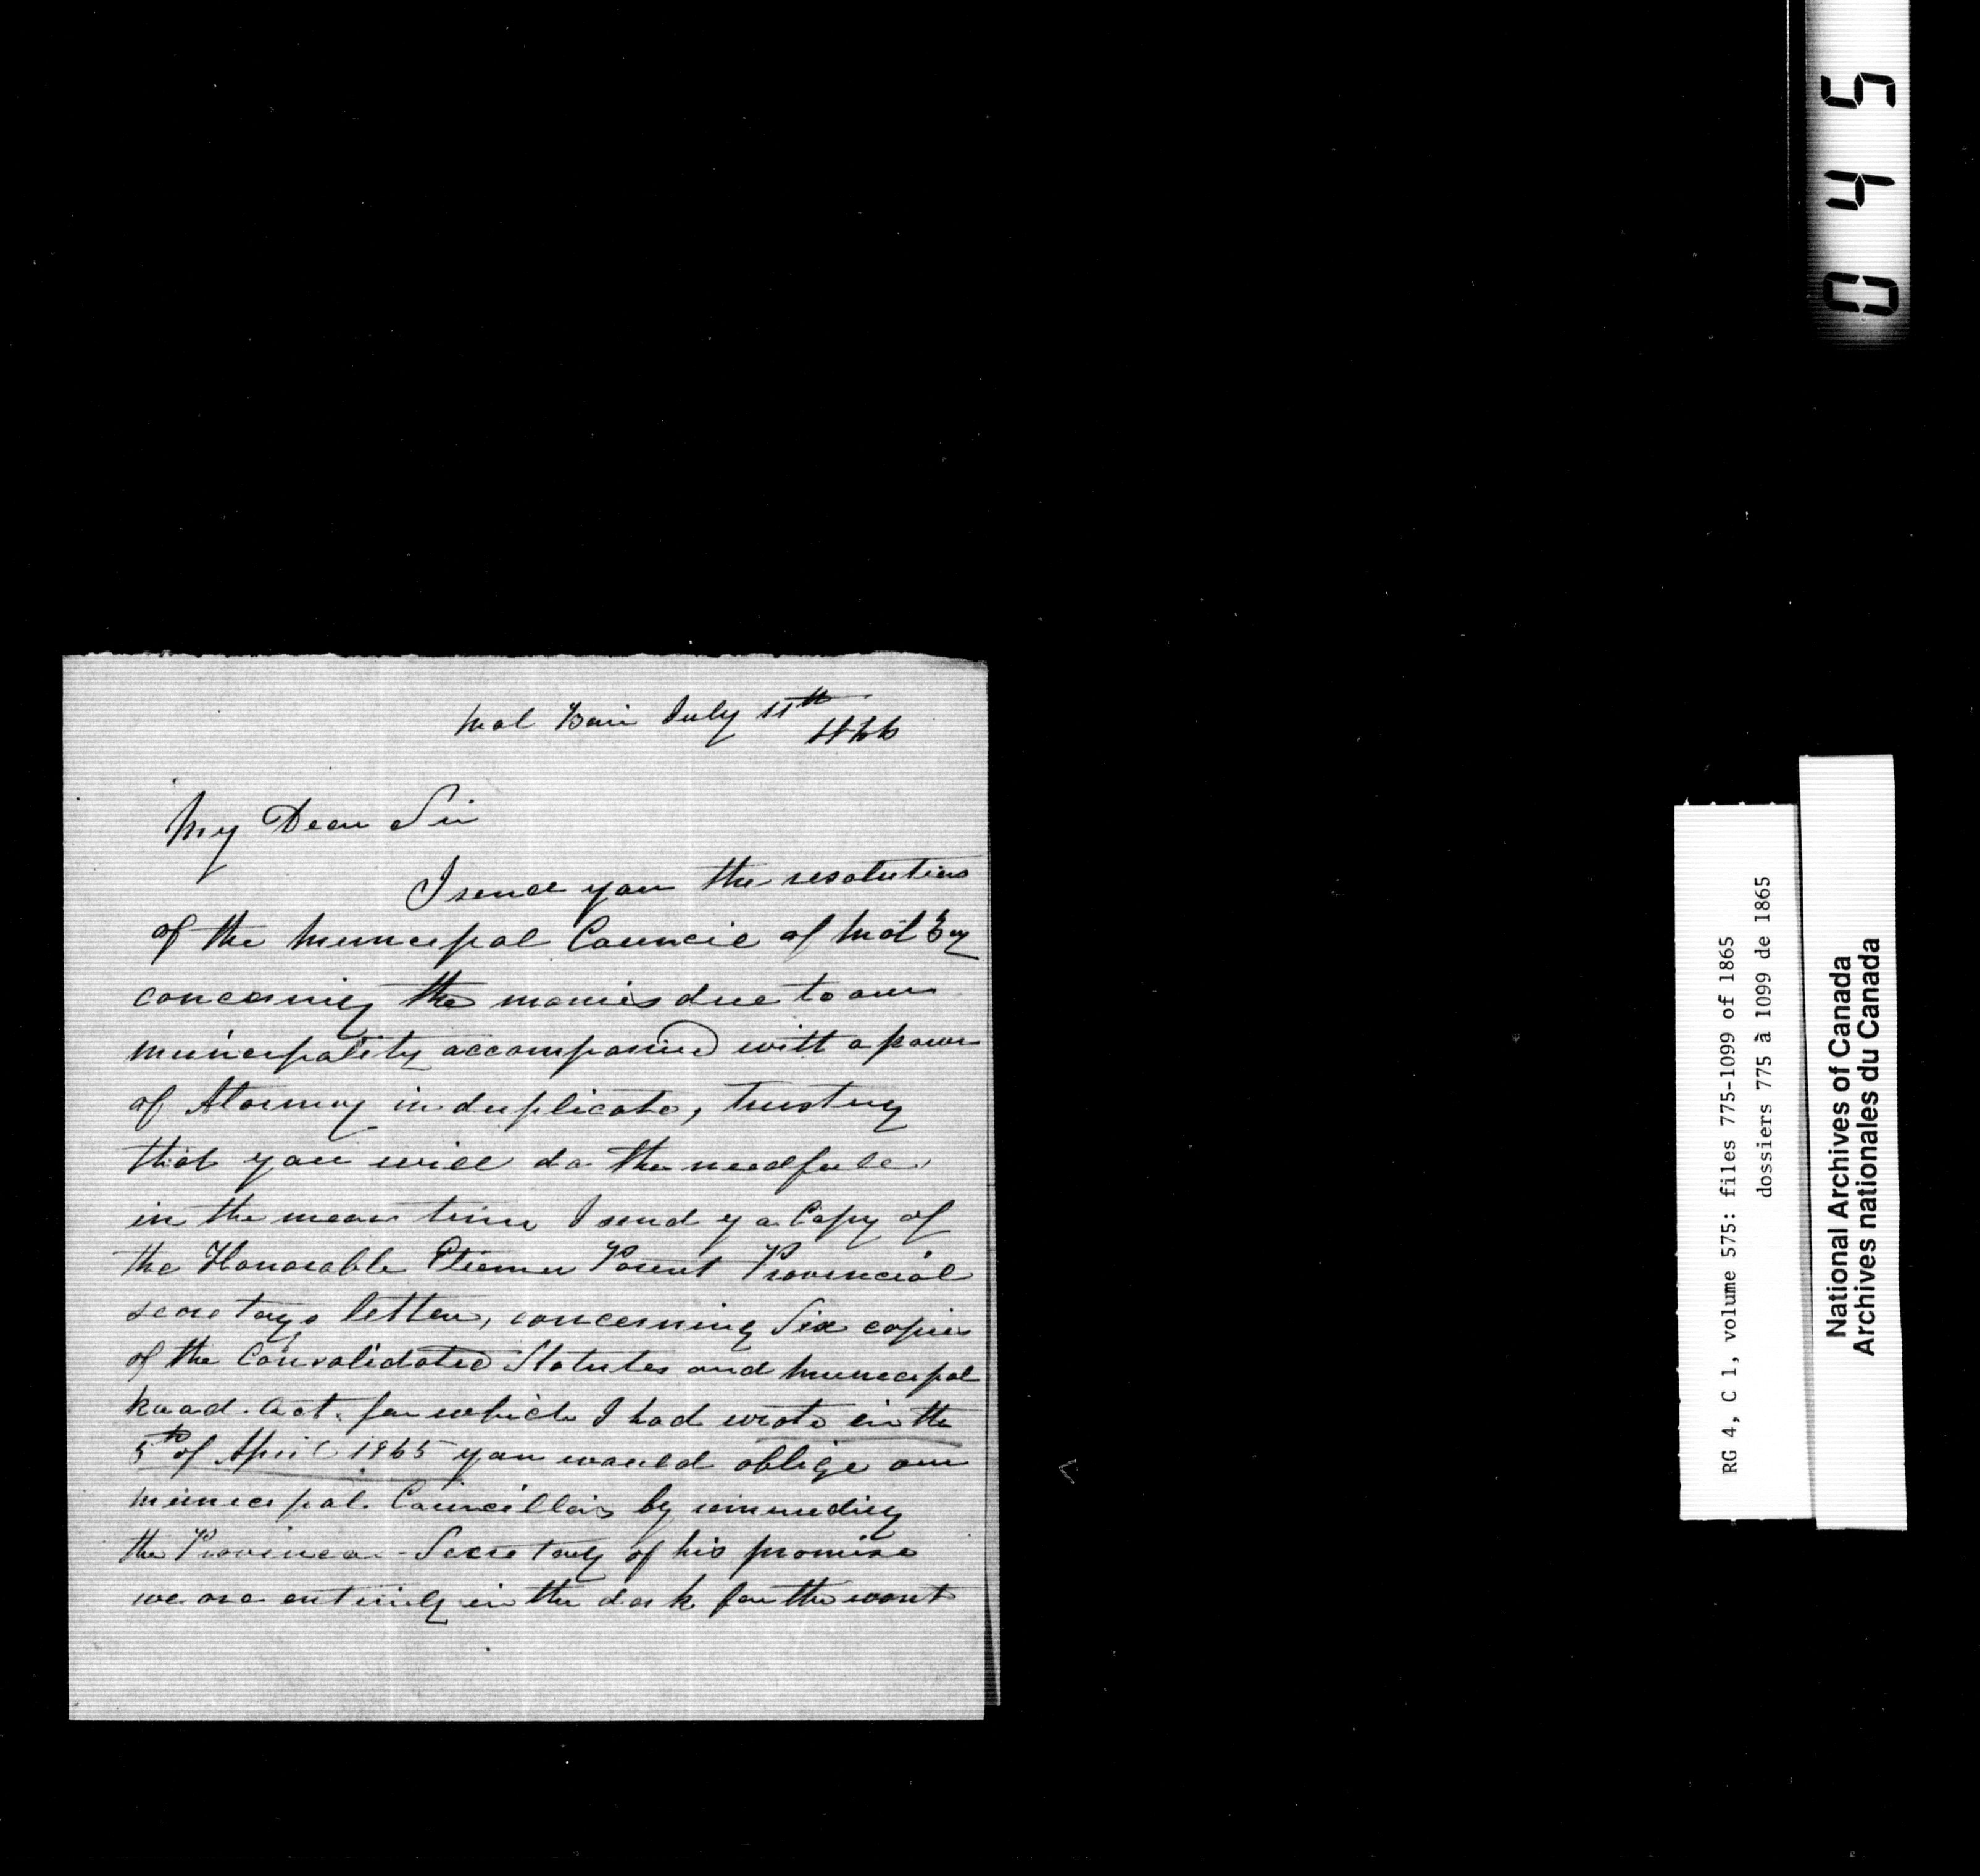 Mal Baie July 11th
1866
My Dear Sir
I send you the resolutions
of the Municipal Council of Mal Bay
concerning the monies due to our
municipality accompanied with a power
of Atorney in duplicate, trusting
that you will do the needfull,
in the mean time I send y a Copy of
the Honorable Etienne Parent Provincial
secretays letter, concerning Six copies
of the Consolidated Statutes and Municipal
Road Act. for which I had wrote in the
5th of April 1865 you would oblige our
Municipal Councillors by reminding
the Provincial - Secretary of his promise
we are entirely in the dark for the want
0 4 5
RG 4, C 1, volume 575: files 775-1099 of 1865
dossiers 775 à 1099 de 1865
National Archives of Canada
Archives nationales du Canada